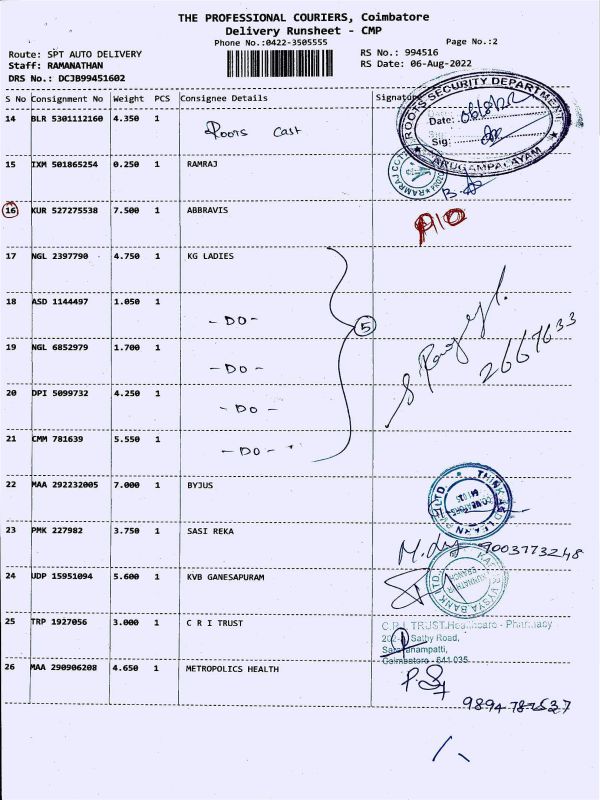 THE PROFESSIONAL COURIERS, Coimbatore
Delivery Runsheet - CMP
Phone No.:0422-3505555 Page No.:2
Route: SPT AUTO DELIVERY RS No.: 994516
Staff: RAMANATHAN RS Date: 06-Aug-2022
DRS No.: DCJB99451602
S No Consignment No Weight PCS Consignee Details Signature
14 BLR 5301112160 4.350 1 Roots Cast
ROOTS SECURITY DEPARTMENT
Date:
Sig:
ARUGAMPALAYAM
15 IXM 501865254 0.250 1 RAMRAJ
16 KUR 527275538 7.500 1 ABBRAVIS
17 NGL 2397790 4.750 1 KG LADIES
18 ASD 1144497 1.050 1 - DO -
5
2667633
19 NGL 6852979 1.700 1 - DO -
20 DPI 5099732 4.250 1 - DO -
21 CMM 781639 5.550 1 - DO -
22 MAA 292232005 7.000 1 BYJUS
THINK AND LEARN PVT LTD.
23 PMK 227982 3.750 1 SASI REKA
9003773248
24 UDP 15951094 5.600 1 KVB GANESAPURAM
VYSYA BANK LTD.
25 TRP 1927056 3.000 1 C R I TRUST
C.R.I. TRUST.Healthcare - Pharmacy
Sathy Road,
Saravanampatti,
Coimbatore - 641 035
26 MAA 290906208 4.650 1 METROPOLICS HEALTH